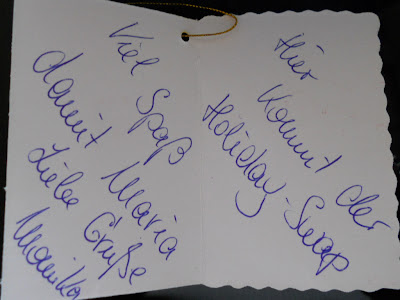 Hier
Kommt der
Holiday-Swap
Viel Spaß
damit Maria
Liebe Grüße